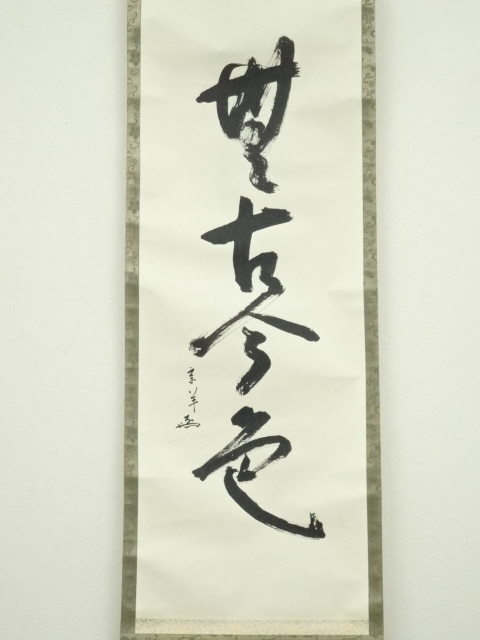 無古今色